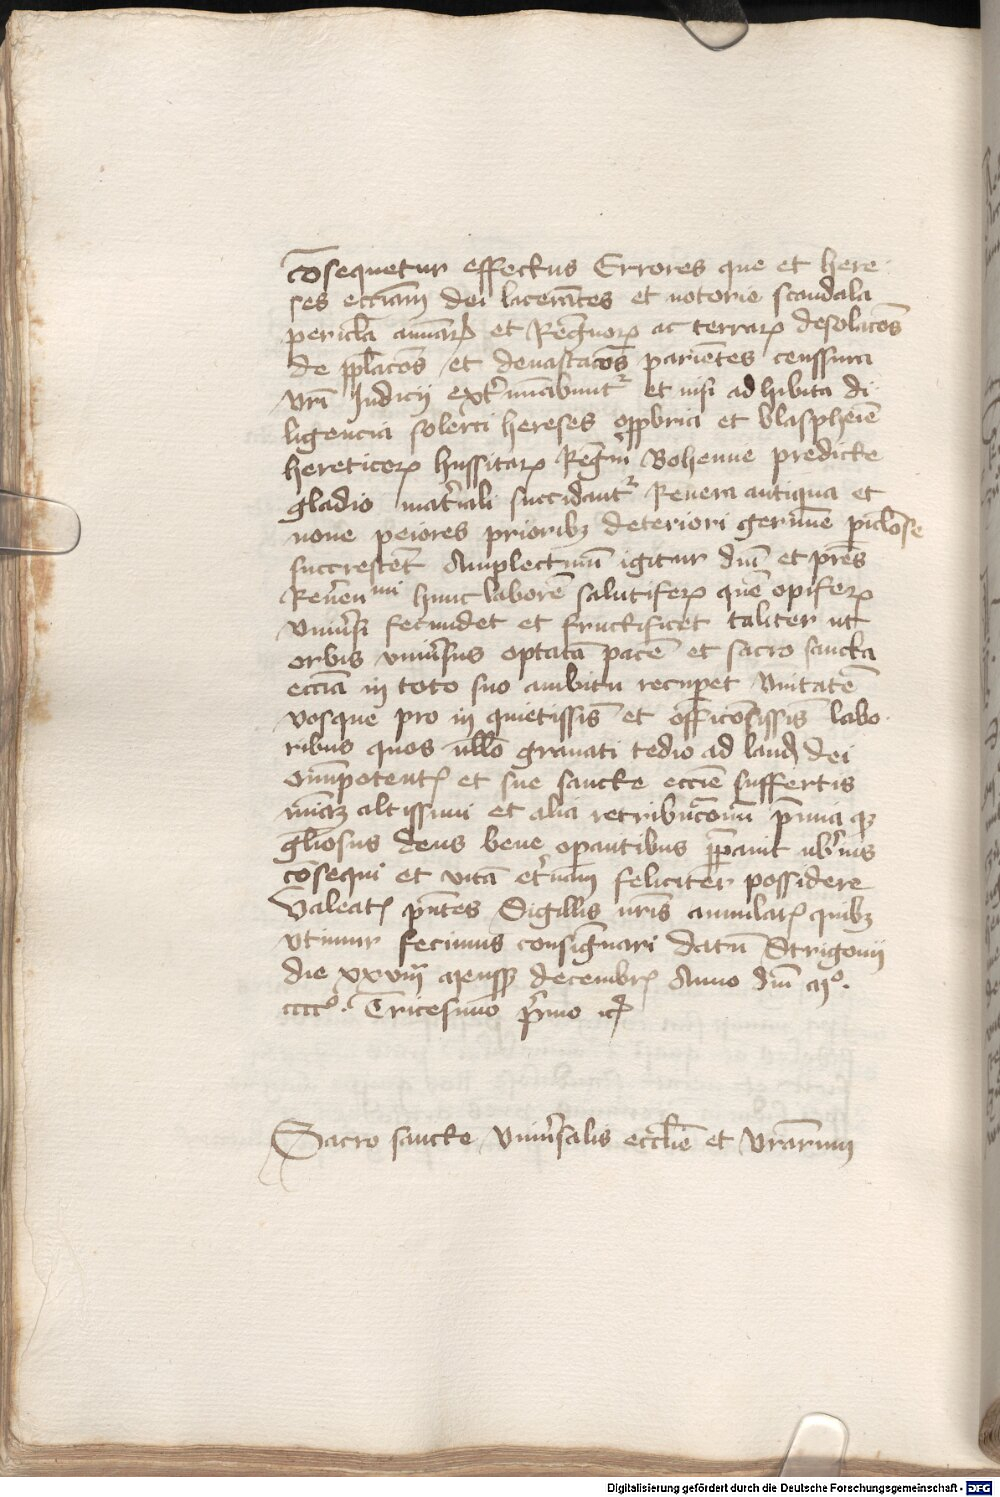 cōsequetur effectus Errores que et here
ses ecciam dei lacerātes et notorie scandala
pericl'a aīar et Regnor ac terrar desolacōes
de pplacōes et deuastacōes pariētes censsura
vr̄i Judicij ext'mīabunt' et nisi ad hibita di
ligencia solerti hereses opp̄bria et blasphemie
hereticor hussitar Regni Bohemie predicte
gladio mat'iali succidant' Reuera antiqua et
noue peiores priorib; deteriori germīe piclose
succrescēt Amplectimī igitur dn̄i et pr̄es
Reuerenmi hunc laborē salutifer quē opifex
Vniu'si fecundet et fructificet taliter ut
orbis vniu'sus optatā pacē et sacro sancta
eccia in toto suo ambitu recuperet Vnitatē
vosque pro in quietissis et officiosissis labo
ribus quos nullo grauati tedio ad laudē dei
om̄ipotent' et sue sancte eccie suffertis
altissimi et alia retribucōnū p̄mia q;
gl'iosus deus bene operantibus p̄parauit ub'ius
cōsequi et vitā et'nam feliciter possidere
Valeat' pn̄tes Sigillis nr̄is annular' quib;
vtimur fecimus consignari datū Strigonij
die xxviij mensis decembr' Anno dn̄i mo.
cccco. Tricesimo p'mo etc
Sacro sancte Vniu'salis eccl'ie et Vrarum